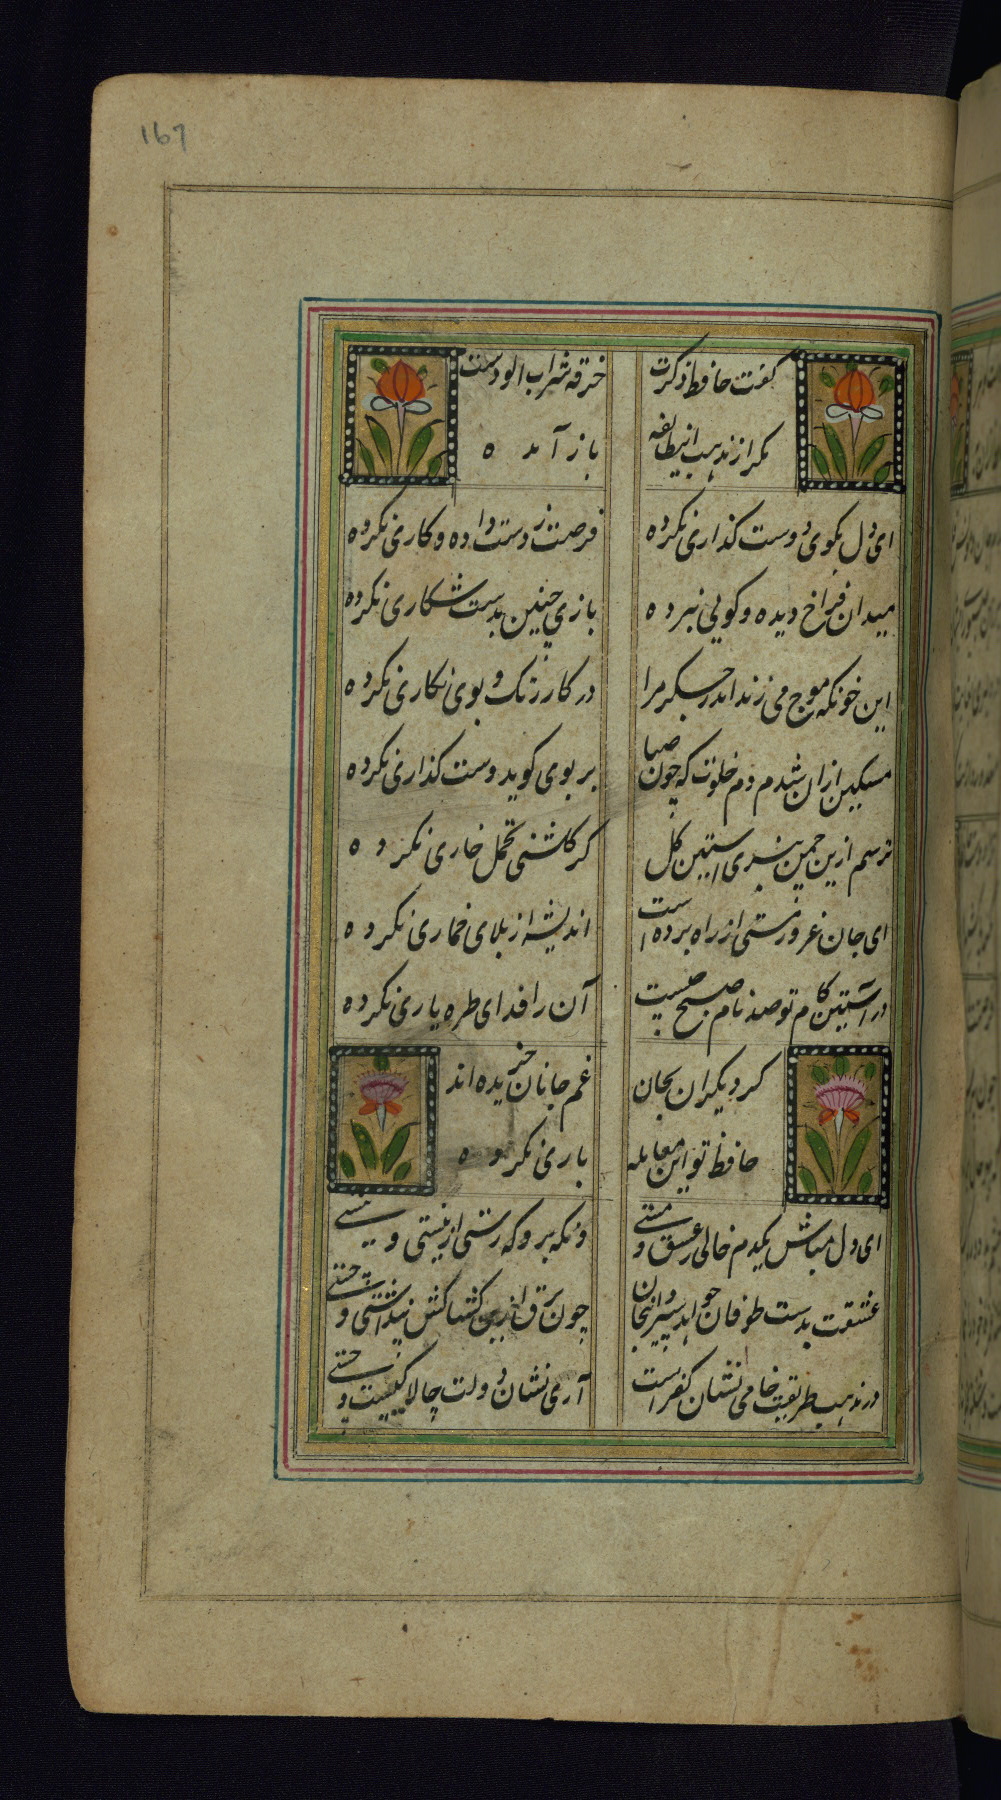 167
گفت حافظ ذکرت خرقه شراب الودست
مکر از مذهب اینطایفه باز آمده
ای دل بکوی دوست کذاری نکرده فرصت ز دست داده و کاری نکرده
میدان فراخ دیده و کویی نبرده بازی چنین بدست شکاری نکرده
این خونکه موج می زند اندر جکر مرا در کار رنک و بوی نکاری نکرده
مسکین ازان شدم دم خلوت که چون صبا بر بوی کوید وست کذاری نکرده
ترسم ازین چمن نبری استین کل کز کلشنی تحمل خاری نکرده
ای جان غرور مستی از راه برده است اندیشه از بلای خماری نکرده
در آستین کام تو صد نام صبح نیست آن را فدای طره یاری نکرده
کر دیکران بجان غم جانان خریده اند
حافظ تو این معامله باری نکرده
ای دل مباش یکدم خالی ز عشق و مستی ونکه برو که رستی از نیستی و هستی
عشقت بدست طوفان خواهد سپرد ایجان چون برق ازین کشاکش پنداشتی و جستی
در مذهب طریقت خامی نشان کفر است آری نشان دولت چالاکیست و جستی